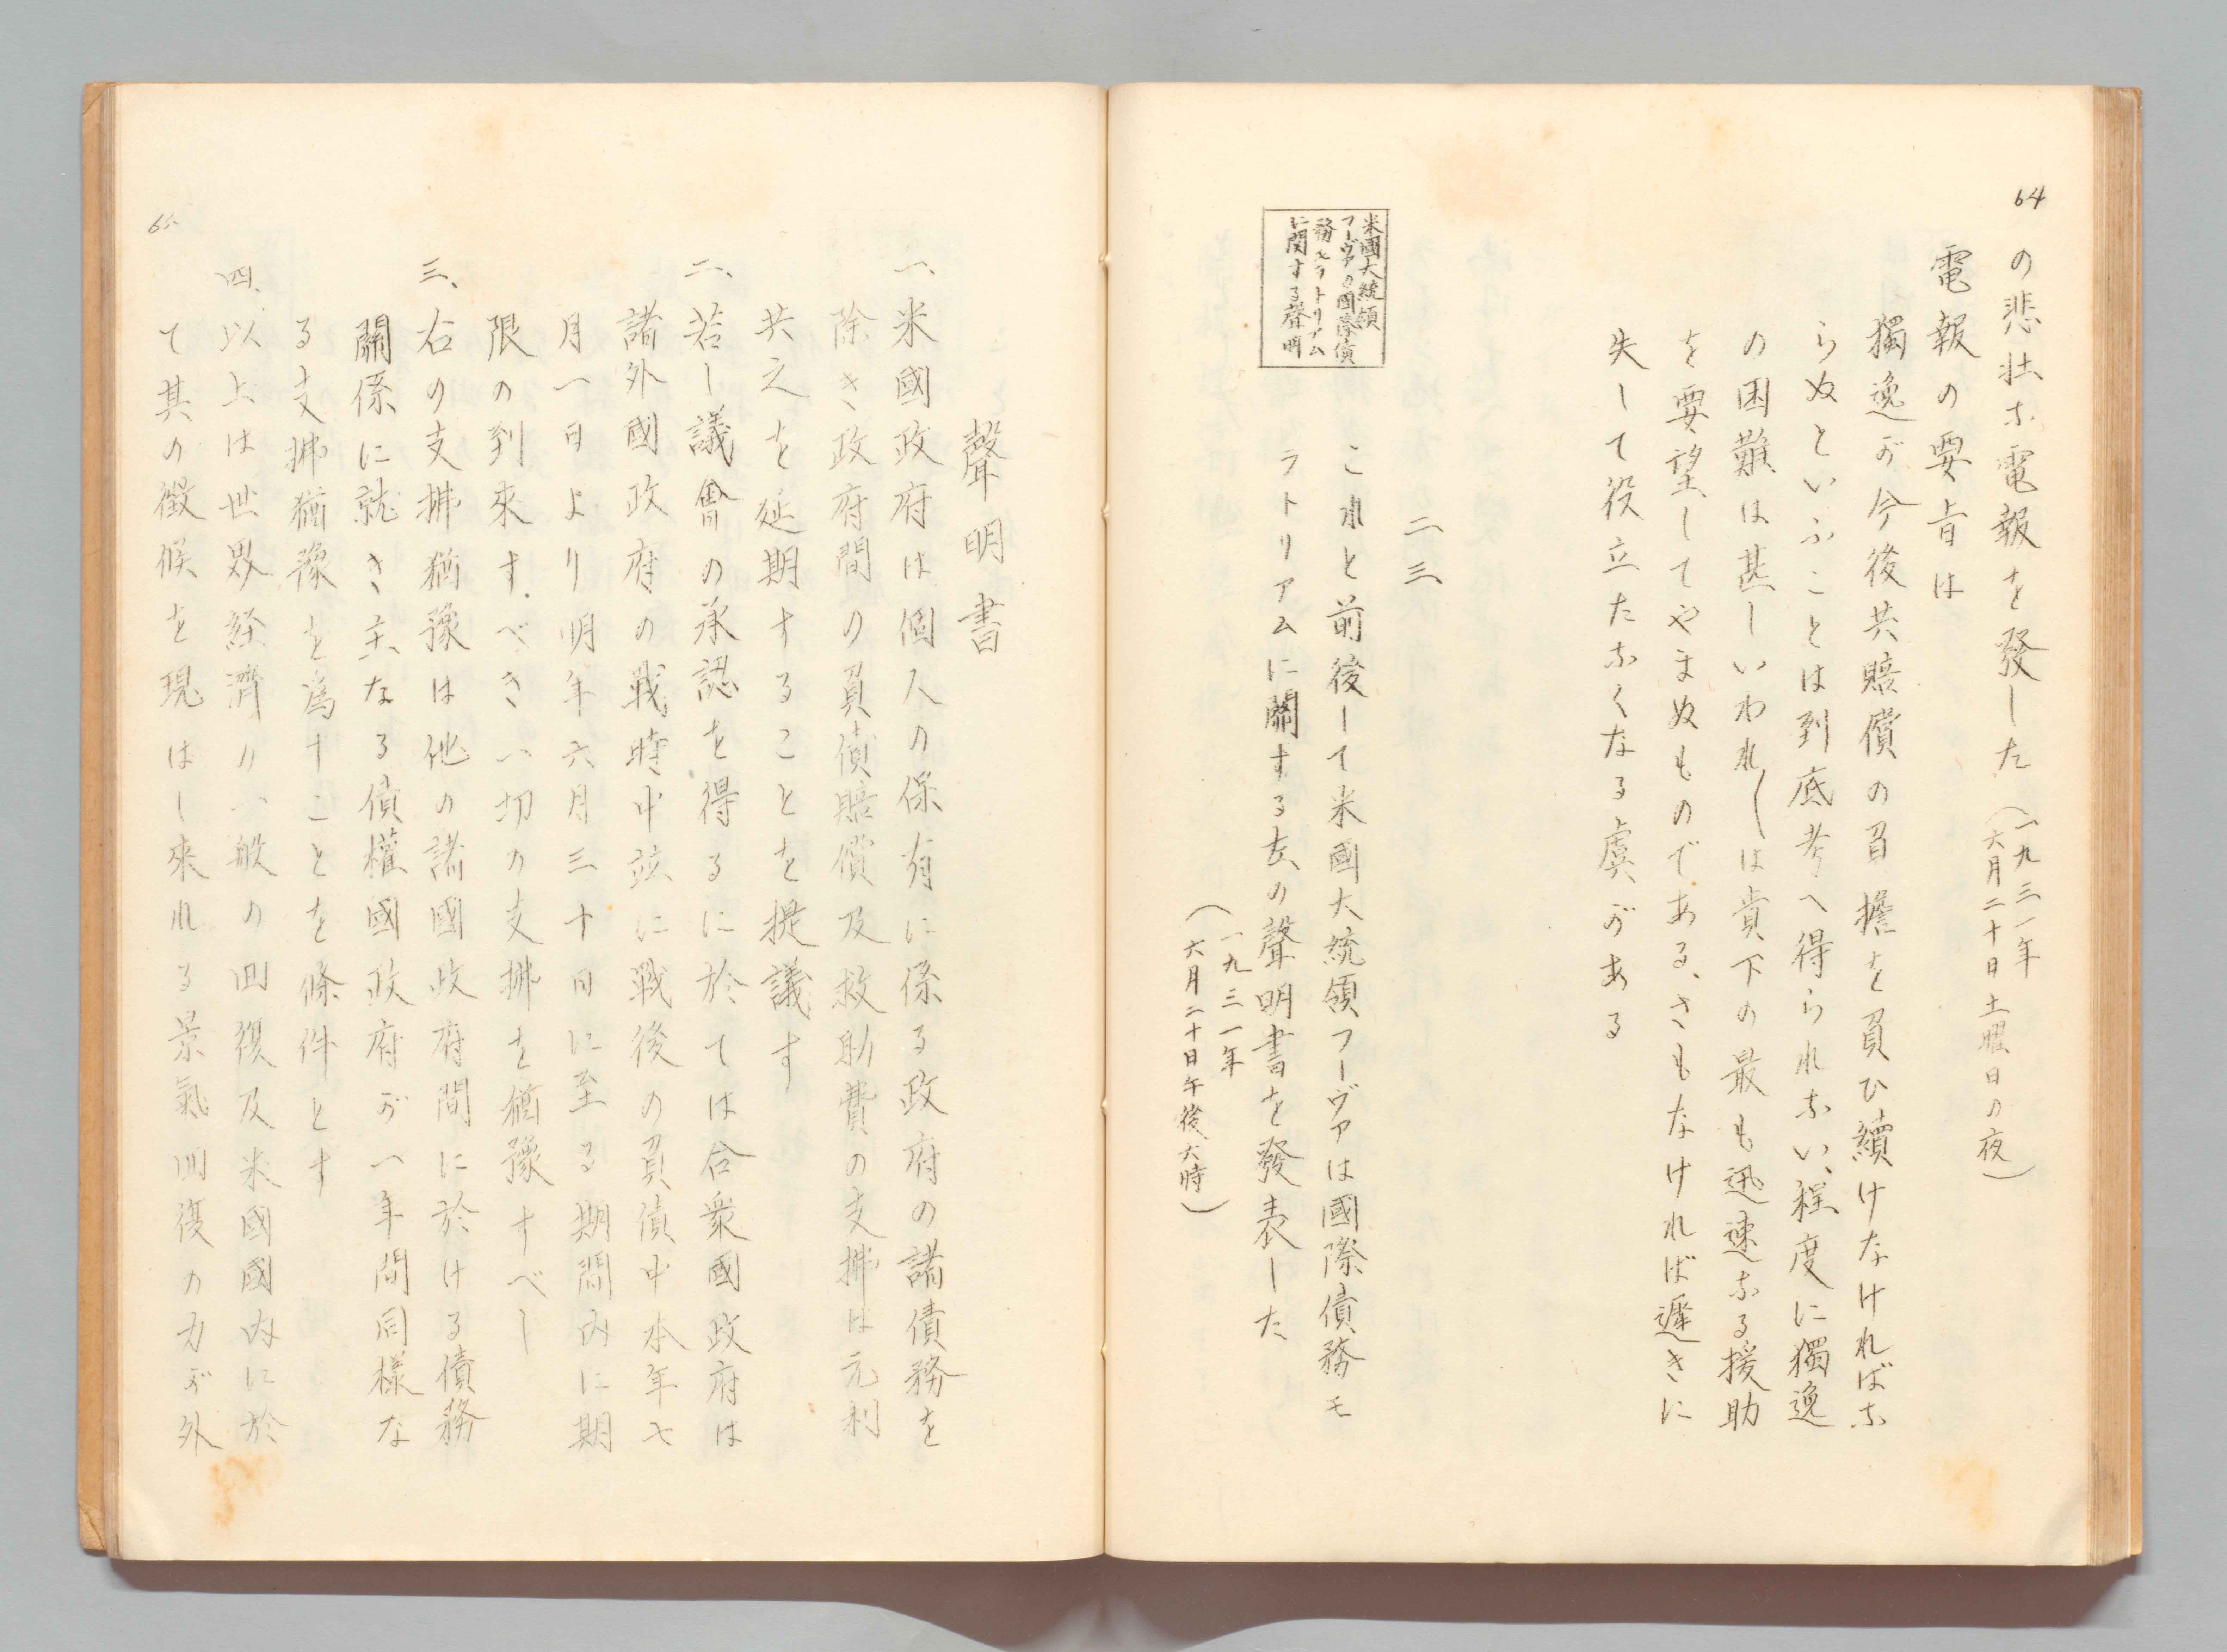 64
の悲壮な電報を發した(一九三一年六月二十日土曜日の夜)
電報の要旨は
獨逸が今後共賠償の負擔を負ひ續けなければな
らぬといふことは到底考へ得られない、程度に獨逸
の困難は甚しいわれ〳〵は貴下の最も迅速なる援助
を要望してやまぬものである、さもなければ遲きに
失して役立たなくなる虞がある
二三
米國大統領
フーヴァの國際債
務モラトリアム
に関する聲明
これと前後して米國大統領フーヴァは國際債務モ
ラトリアムに關する左の聲明書を發表した
(一九三一年
六月二十日午後六時)
聲明書
一、米國政府は個人の保有に係る政府の諸債務を
除き政府間の負債賠償及救助費の支拂は元利
共之を延期することを提議す
二、若し議會の承認を得るに於ては合衆國政府は
諸外國政府の戰時中竝に戰後の負債中本年七
月一日より明年六月三十日に至る期間内に期
限の到來すべき一切の支拂を猶豫すべし
三、右の支拂猶豫は他の諸國政府間に於ける債務
關係に就き主なる債權國政府が一年間同樣な
る支拂猶豫を爲すことを條件とす
四、以上は世界経濟の一般の囘復及米國國内に於
て其の徴候を現はし來れる景氣囘復の力が外
65